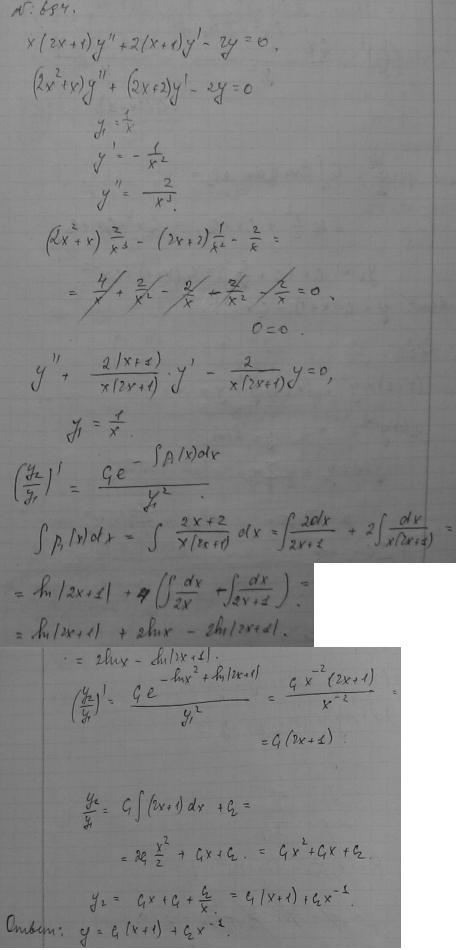 №: 694.
x(2x+1)y'' + 2(x+1)y' - 2y = 0.
(2x²+x)y'' + (2x+2)y' - 2y = 0
y₁ = 1/x
y' = - 1/x²
y'' = 2/x³.
(2x²+x) 2/x³ - (2x+2) 1/x² - 2/x =
= 4/x + 2/x² - 2/x - 2/x² - 2/x = 0.
0=0.
y'' + 2(x+1)/x(2x+1) · y' - 2/x(2x+1) y = 0,
y₁ = 1/x.
(y₂/y₁)' = C₁e^(-∫p₁(x)dx) / y₁².
∫p₁(x)dx = ∫ (2x+2)/x(2x+1) dx = ∫ 2dx/(2x+1) + 2∫ dx/x(2x+1) =
= ln|2x+1| + 4(∫ dx/2x - ∫ dx/(2x+1)) =
= ln|2x+1| + 2lnx - 2ln|2x+1|.
= 2lnx - ln|2x+1|.
(y₂/y₁)' = C₁e^(-lnx²+ln|2x+1|) / y₁² = C₁x⁻²(2x+1) / x⁻² =
= C₁(2x+1).
y₂/y₁ = C₁∫(2x+1)dx + C₂ =
= 2C₁ x²/2 + C₁x + C₂. = C₁x² + C₁x + C₂.
y₂ = C₁x + C₁ + C₂/x. = C₁(x+1) + C₂x⁻¹.
Ответ: y = C₁(x+1) + C₂x⁻¹.